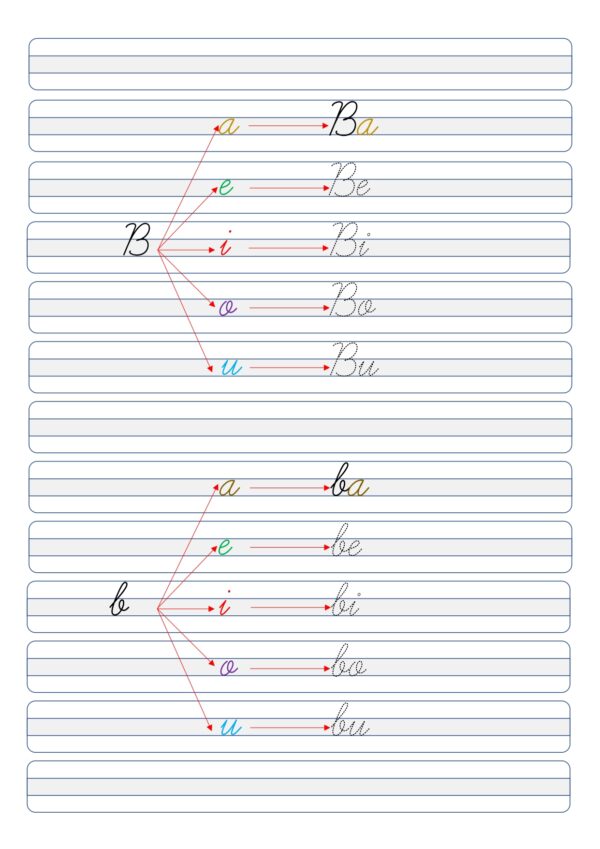 a Ba
e Be
B i Bi
o Bo
u Bu
a ba
e be
b i bi
o bo
u bu